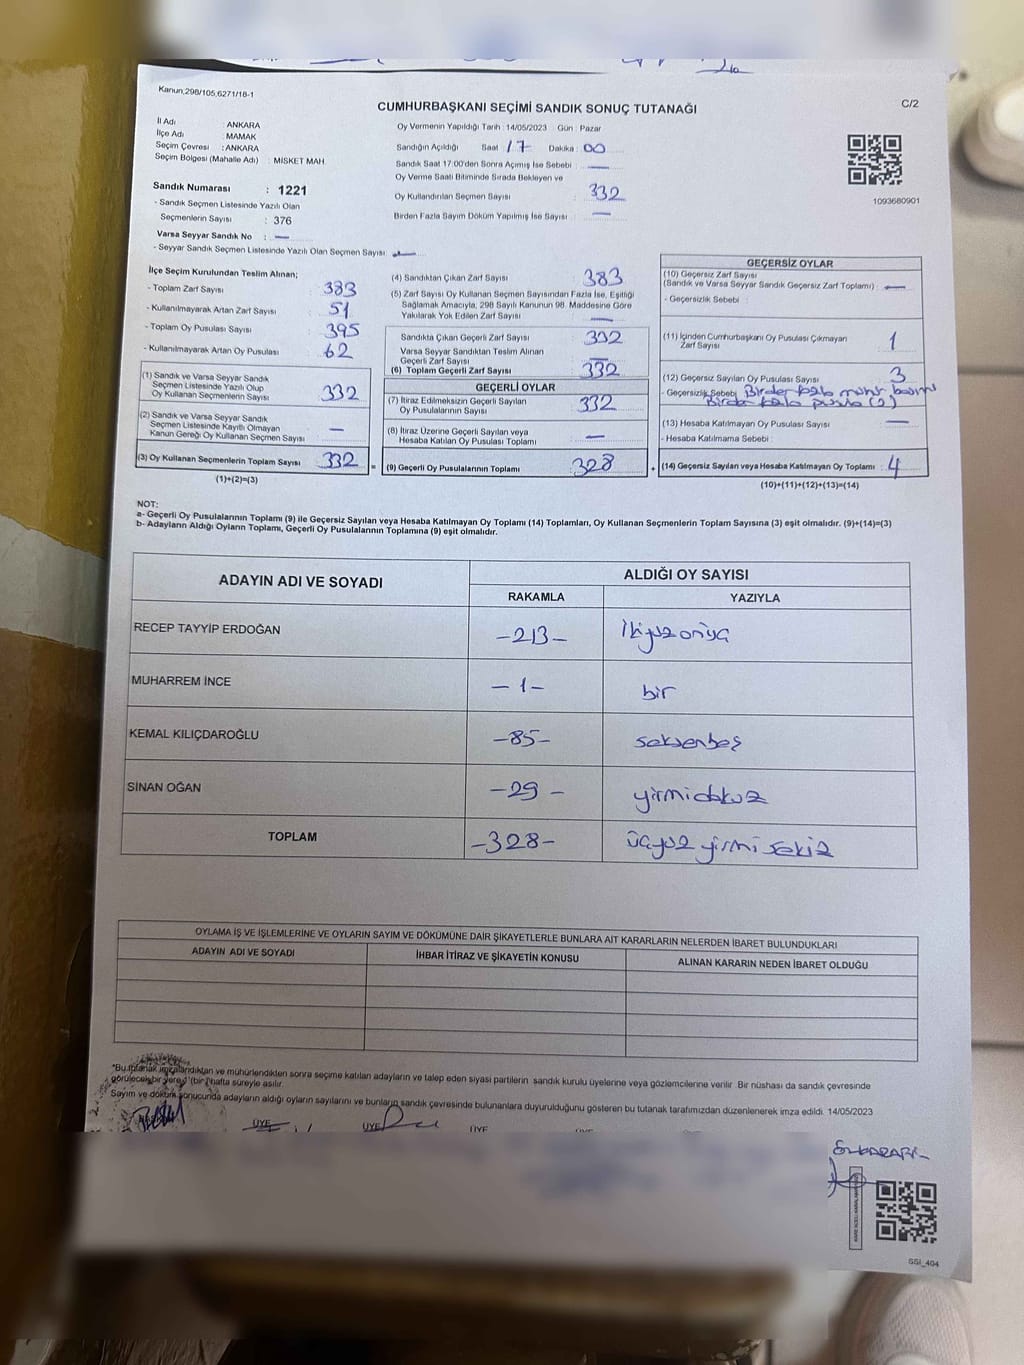 Kanun,298/105,6271/18-1
CUMHURBAŞKANI SEÇİMİ SANDIK SONUÇ TUTANAĞI
C/2
İl Adı : ANKARA
İlçe Adı : MAMAK
Seçim Çevresi : ANKARA
Seçim Bölgesi (Mahalle Adı) : MİSKET MAH.
Sandık Numarası : 1221
- Sandık Seçmen Listesinde Yazılı Olan
Seçmenlerin Sayısı : 376
Varsa Seyyar Sandık No : —
- Seyyar Sandık Seçmen Listesinde Yazılı Olan Seçmen Sayısı: —
Oy Vermenin Yapıldığı Tarih : 14/05/2023 Gün : Pazar
Sandığın Açıldığı Saat 17 Dakika : 00
Sandık Saat 17:00'den Sonra Açımış İse Sebebi : —
Oy Verme Saati Bitiminde Sırada Bekleyen ve
Oy Kullandırılan Seçmen Sayısı : 332
Birden Fazla Sayım Döküm Yapılmış İse Sayısı : —
1093680901
İlçe Seçim Kurulundan Teslim Alınan;
- Toplam Zarf Sayısı : 383
- Kullanılmayarak Artan Zarf Sayısı : 51
- Toplam Oy Pusulası Sayısı : 395
- Kullanılmayarak Artan Oy Pusulası : 62
(1) Sandık ve Varsa Seyyar Sandık
Seçmen Listesinde Yazılı Olup
Oy Kullanan Seçmenlerin Sayısı : 332
(2) Sandık ve Varsa Seyyar Sandık
Seçmen Listesinde Kayıtlı Olmayan
Kanun Gereği Oy Kullanan Seçmen Sayısı : —
(3) Oy Kullanan Seçmenlerin Toplam Sayısı : 332 =
(1)+(2)=(3)
(4) Sandıktan Çıkan Zarf Sayısı : 383
(5) Zarf Sayısı Oy Kullanan Seçmen Sayısından Fazla İse, Eşitliği
Sağlamak Amacıyla, 298 Sayılı Kanunun 98. Maddesine Göre
Yakılarak Yok Edilen Zarf Sayısı : —
Sandıkta Çıkan Geçerli Zarf Sayısı : 332
Varsa Seyyar Sandıktan Teslim Alınan
Geçerli Zarf Sayısı : —
(6) Toplam Geçerli Zarf Sayısı : 332
GEÇERLİ OYLAR
(7) İtiraz Edilmeksizin Geçerli Sayılan
Oy Pusulalarının Sayısı : 332
(8) İtiraz Üzerine Geçerli Sayılan veya
Hesaba Katılan Oy Pusulası Toplamı : —
(9) Geçerli Oy Pusulalarının Toplamı : 328 +
GEÇERSİZ OYLAR
(10) Geçersiz Zarf Sayısı
(Sandık ve Varsa Seyyar Sandık Geçersiz Zarf Toplamı) : —
- Geçersizlik Sebebi :
(11) İçinden Cumhurbaşkanı Oy Pusulası Çıkmayan
Zarf Sayısı : 1
(12) Geçersiz Sayılan Oy Pusulası Sayısı : 3
- Geçersizlik Sebebi : Birden fazla mühür basımı
Birden fazla pusula (2)
(13) Hesaba Katılmayan Oy Pusulası Sayısı : —
- Hesaba Katılmama Sebebi :
(14) Geçersiz Sayılan veya Hesaba Katılmayan Oy Toplamı : 4
(10)+(11)+(12)+(13)=(14)
NOT:
a- Geçerli Oy Pusulalarının Toplamı (9) ile Geçersiz Sayılan veya Hesaba Katılmayan Oy Toplamı (14) Toplamları, Oy Kullanan Seçmenlerin Toplam Sayısına (3) eşit olmalıdır. (9)+(14)=(3)
b- Adayların Aldığı Oyların Toplamı, Geçerli Oy Pusulalarının Toplamına (9) eşit olmalıdır.
ADAYIN ADI VE SOYADI
ALDIĞI OY SAYISI
RAKAMLA YAZIYLA
RECEP TAYYİP ERDOĞAN -213-
MUHARREM İNCE -1- bir
KEMAL KILIÇDAROĞLU -85- seksenbeş
SİNAN OĞAN -29- yirmidokuz
TOPLAM -328- üçyüz yirmi sekiz
OYLAMA İŞ VE İŞLEMLERİNE VE OYLARIN SAYIM VE DÖKÜMÜNE DAİR ŞİKAYETLERLE BUNLARA AİT KARARLARIN NELERDEN İBARET BULUNDUKLARI
ADAYIN ADI VE SOYADI İHBAR İTİRAZ VE ŞİKAYETİN KONUSU ALINAN KARARIN NEDEN İBARET OLDUĞU
*Bu tutanak imzalandıktan ve mühürlendikten sonra seçime katılan adayların ve talep eden siyasi partilerin sandık kurulu üyelerine veya gözlemcilerine verilir. Bir nüshası da sandık çevresinde
görülecek bir yere 1 (bir) hafta süreyle asılır.
Sayım ve döküm sonucunda adayların aldığı oyların sayılarını ve bunların sandık çevresinde bulunanlara duyurulduğunu gösteren bu tutanak tarafımızdan düzenlenerek imza edildi. 14/05/2023
ÜYE ÜYE ÜYE
SSI_404